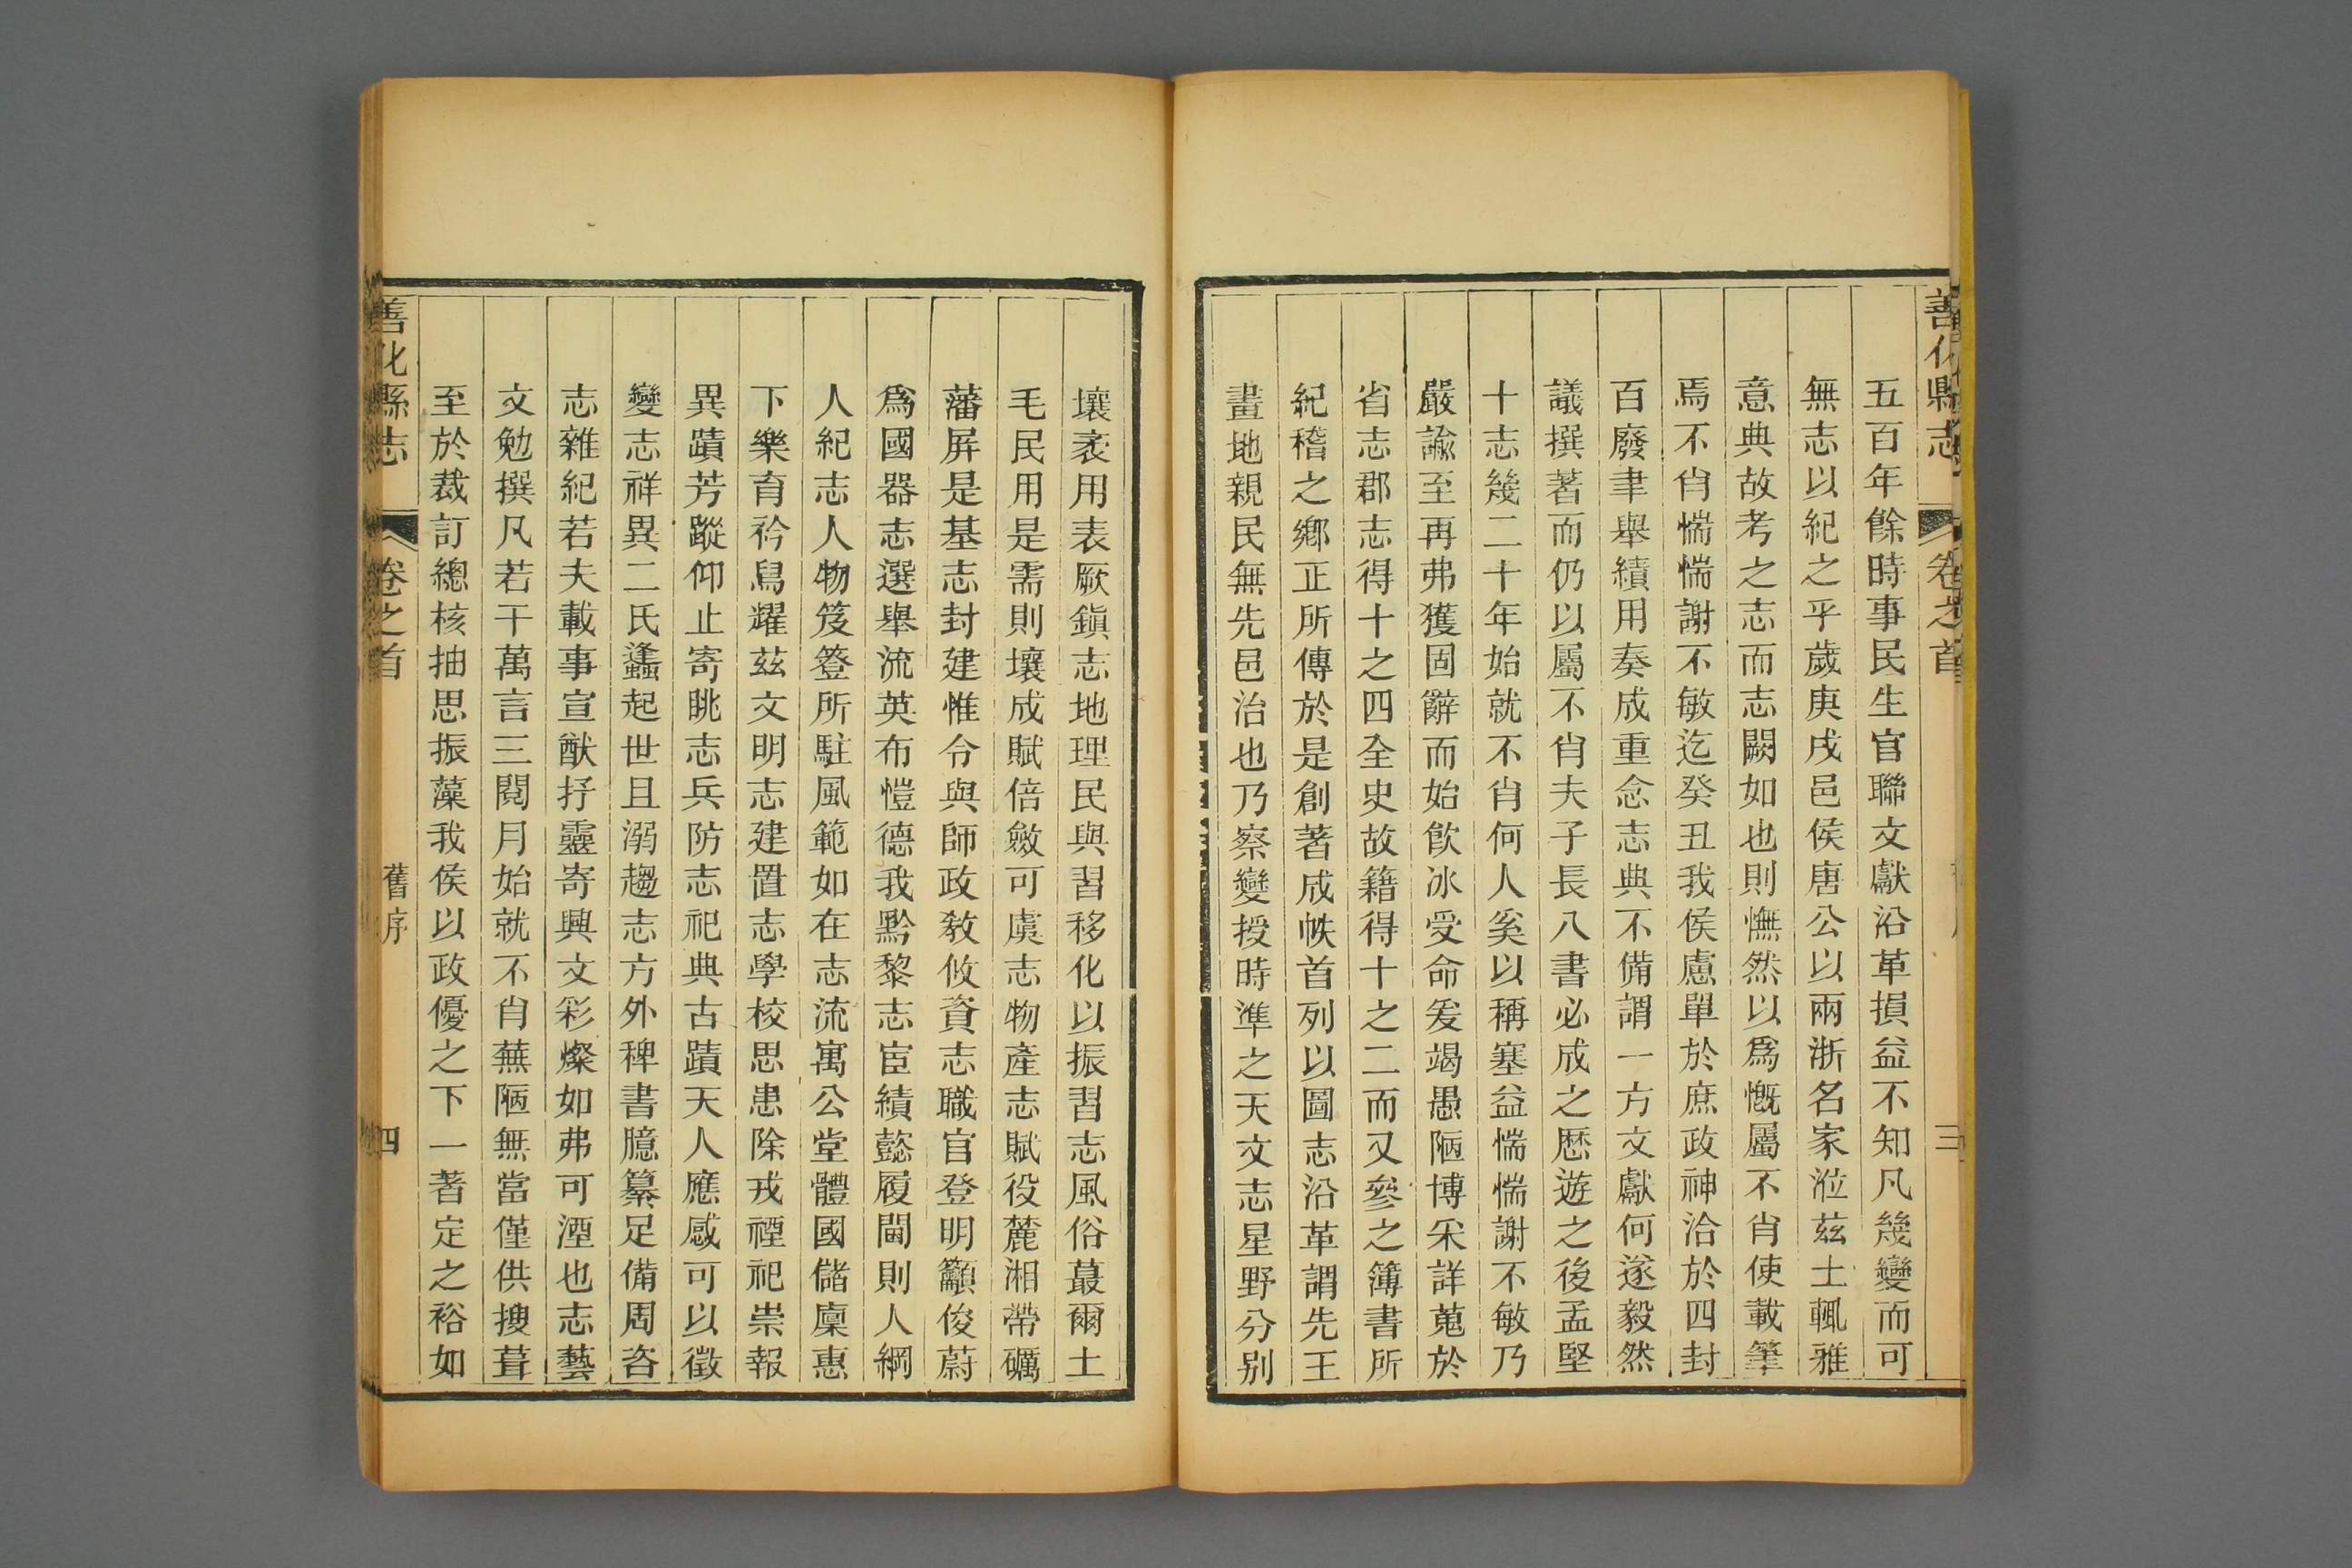 善化縣志 卷之首 三
五百年餘時事民生官聯文獻沿革損益不知凡幾變而可
無志以紀之乎歲庚戌邑侯唐公以兩浙名家涖茲土輒雅
意典故考之志而志闕如也則憮然以爲慨屬不肖使載筆
焉不肖惴惴謝不敏迄癸丑我侯慮單於庶政神洽於四封
百廢聿舉績用奏成重念志典不備謂一方文獻何遂毅然
議撰著而仍以屬不肖夫子長八書必成之歷遊之後孟堅
十志幾二十年始就不肖何人奚以稱塞益惴惴謝不敏乃
嚴諭至再弗獲固辭而始飲冰受命爰竭愚陋博采詳蒐於
省志郡志得十之四全史故籍得十之二而又參之簿書所
紀稽之鄉正所傳於是創著成帙首列以圖志沿革謂先王
畫地親民無先邑治也乃察變授時準之天文志星野分別
壤袤用表厥鎭志地理民與習移化以振習志風俗蕞爾土
毛民用是需則壤成賦倍斂可虞志物產志賦役麓湘帶礪
藩屏是基志封建惟令與師政敎攸資志職官登明籲俊蔚
爲國器志選舉流英布愷德我黔黎志宦績懿履閫則人綱
人紀志人物笈簦所駐風範如在志流寓公堂體國儲廩惠
下樂育衿舄耀茲文明志建置志學校思患除戎禋祀崇報
異蹟芳蹤仰止寄眺志兵防志祀典古蹟天人應感可以徵
變志祥異二氏蠭起世且溺趨志方外稗書臆纂足備周咨
志雜紀若夫載事宣猷抒靈寄興文彩燦如弗可湮也志藝
文勉撰凡若干萬言三閱月始就不肖蕪陋無當僅供搜葺
至於裁訂總核抽思振藻我侯以政優之下一著定之裕如
善化縣志 卷之首 舊序 四